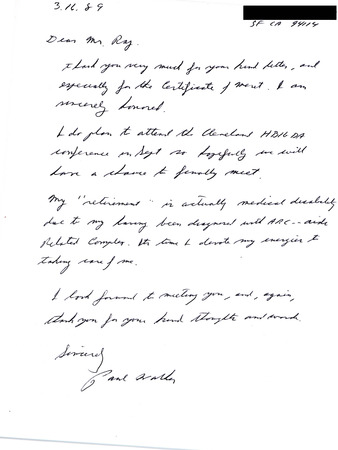 3.16.89
SF CA 94114
Dear Mr. Ray,
Thank you very much for your kind letter, and
especially for the Certificate of Merit. I am
sincerely honored.
I do plan to attend the Cleveland
conference in Sept so hopefully we will
have a chance to finally meet.
My "retirement" is actually medical disability
due to my having been diagnosed with ARC -- aids
Related Complex. Its time to devote my energies to
taking care of me.
I look forward to meeting you, and, again,
thank you for your kind thoughts and words.
Sincerely
Paul